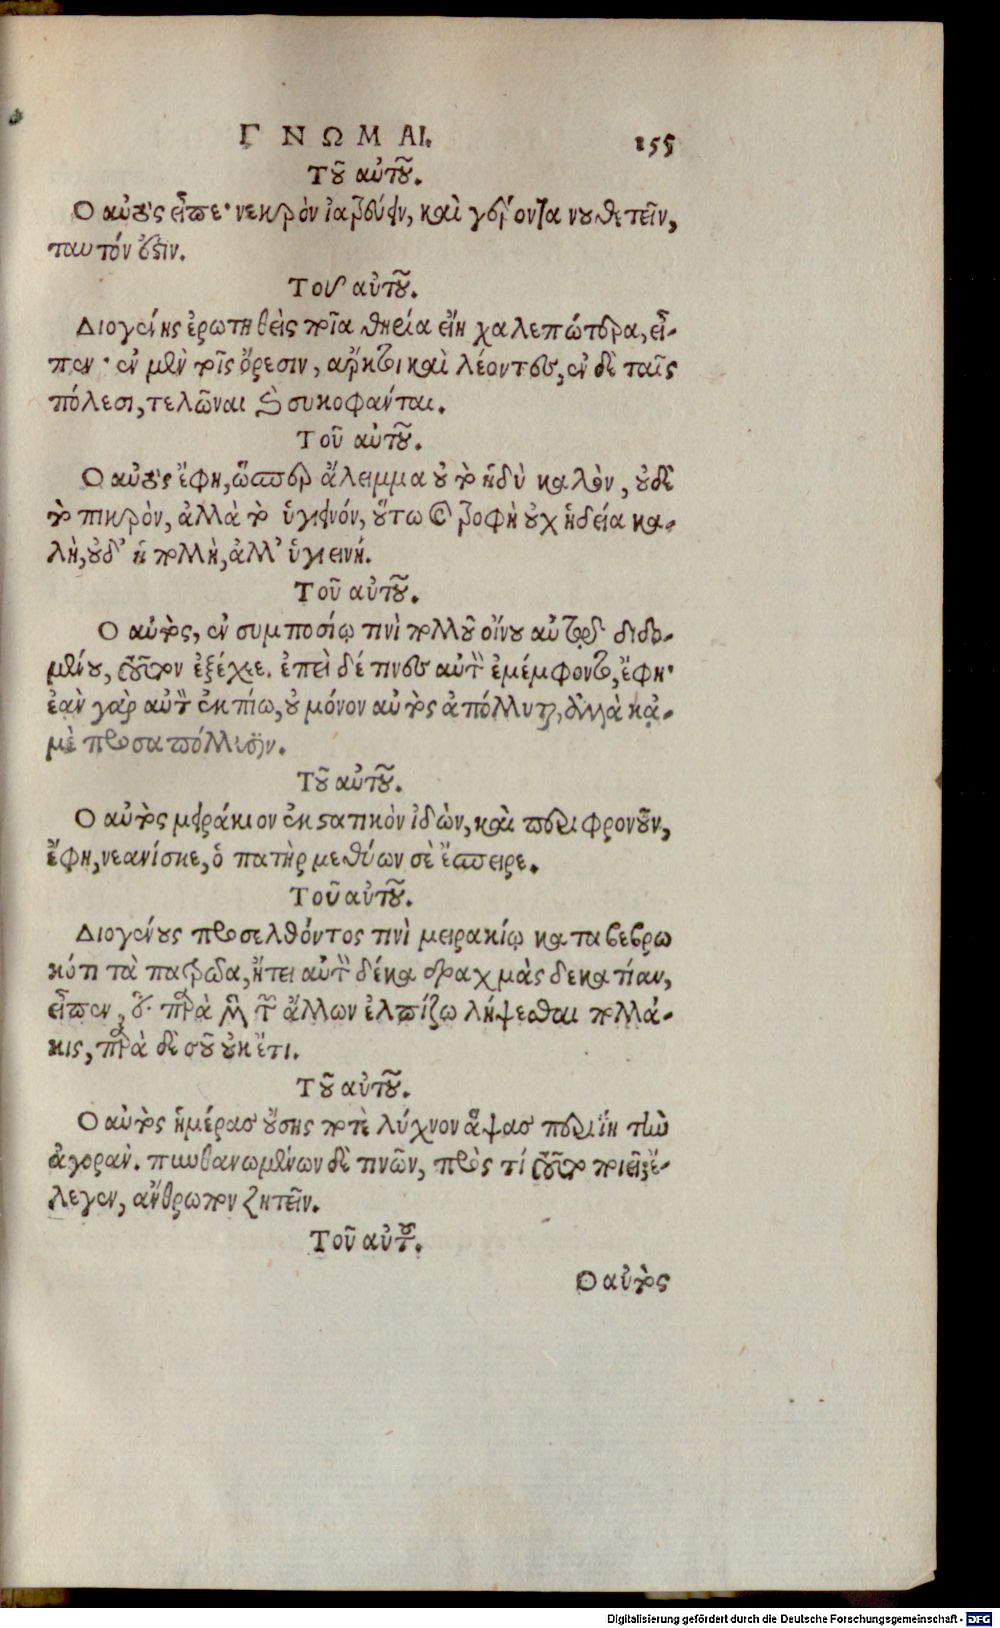 ΓΝΩΜΑΙ. 155
Τοῦ αὐτοῦ.
Ο αὐτὸς εἶπε· νεκρὸν ἰατρεύειν, καὶ γέροντα νουθετεῖν,
ταυτόν ἐστιν.
Τοῦ αὐτοῦ.
Διογένης ἐρωτηθεὶς ποῖα θηρία εἴη χαλεπώτερα, εἶ-
πεν· ἐν μὲν τοῖς ὄρεσιν, ἄρκτοι καὶ λέοντες, ἐν δὲ ταῖς
πόλεσι, τελῶναι καὶ συκοφάνται.
Τοῦ αὐτοῦ.
Ο αὐτὸς ἔφη, ὥσπερ ἄλειμμα οὐ τὸ ἡδὺ καλὸν, οὐδὲ
τὸ πικρὸν, ἀλλὰ τὸ ὑγιεινόν, οὕτω καὶ τροφὴ οὐχ ἡδεία κα-
λὴ, οὐδ' ἡ πολλὴ, ἀλλ' ὑγιεινή.
Τοῦ αὐτοῦ.
Ο αὐτὸς, ἐν συμποσίῳ τινὶ πολλοῦ οἴνου αὐτῷ διδο-
μένου, τοῦτον ἐξέχεε. ἐπεὶ δέ τινες αὐτὸν ἐμέμφοντο, ἔφη·
ἐὰν γὰρ αὐτὸν ἐκπίω, οὐ μόνον αὐτὸς ἀπόλλυται, ἀλλὰ κἀ-
μὲ προσαπόλλυσιν.
Τοῦ αὐτοῦ.
Ο αὐτὸς μειράκιον ἐκστατικὸν ἰδὼν, καὶ περιφρονοῦν,
ἔφη, νεανίσκε, ὁ πατὴρ μεθύων σὲ ἔσπειρε.
Τοῦ αὐτοῦ.
Διογένους προσελθόντος τινὶ μειρακίῳ καταβεβρω
κότι τὰ πατρῷα, ᾔτει αὐτὸν δέκα δραχμὰς δεκατίαν,
εἶπεν, ὅτι παρὰ μὲν τῶν ἄλλων ἐλπίζω λήψεσθαι πολλά-
κις, παρὰ δὲ σοῦ οὐκ ἔτι.
Τοῦ αὐτοῦ.
Ο αὐτὸς ἡμέρας οὔσης ποτὲ λύχνον ἅψας περιῄη τὴν
ἀγοράν. πυνθανωμένων δὲ τινῶν, πρὸς τί τοῦτο ποιεῖ; ἔ-
λεγεν, ἄνθρωπον ζητεῖν.
Τοῦ αὐτοῦ.
Ο αὐτὸς
Digitalisierung gefördert durch die Deutsche Forschungsgemeinschaft - DFG